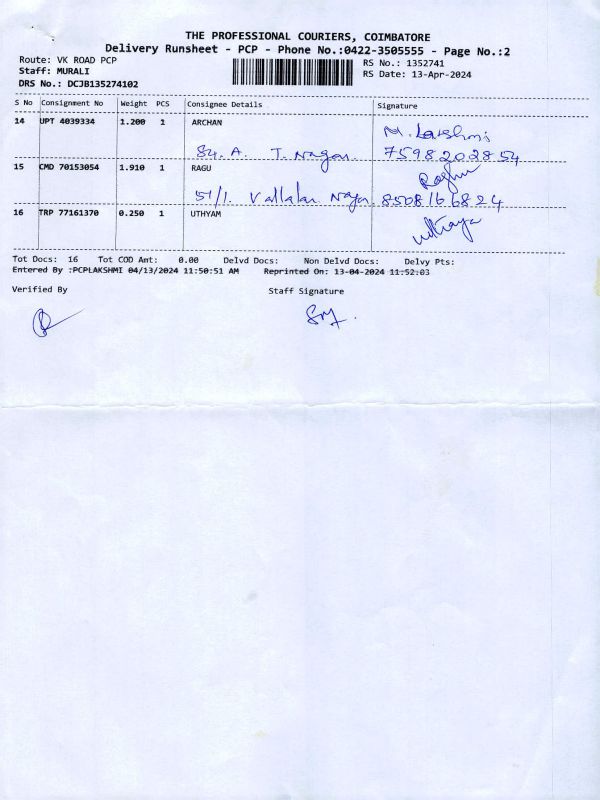 THE PROFESSIONAL COURIERS, COIMBATORE
Delivery Runsheet - PCP - Phone No.:0422-3505555 - Page No.:2
Route: VK ROAD PCP RS No.: 1352741
Staff: MURALI RS Date: 13-Apr-2024
DRS No.: DCJB135274102
S No Consignment No Weight PCS Consignee Details Signature
14 UPT 4039334 1.200 1 ARCHAN
M. Lakshmi
84. A. T. Nagar 7598202854
15 CMD 70153054 1.910 1 RAGU Raghu
51/1. Vallalar Nagar 8508166824
16 TRP 77161370 0.250 1 UTHYAM
Tot Docs: 16 Tot COD Amt: 0.00 Delvd Docs: Non Delvd Docs: Delvy Pts:
Entered By :PCPLAKSHMI 04/13/2024 11:50:51 AM Reprinted On: 13-04-2024 11:52:03
Verified By Staff Signature